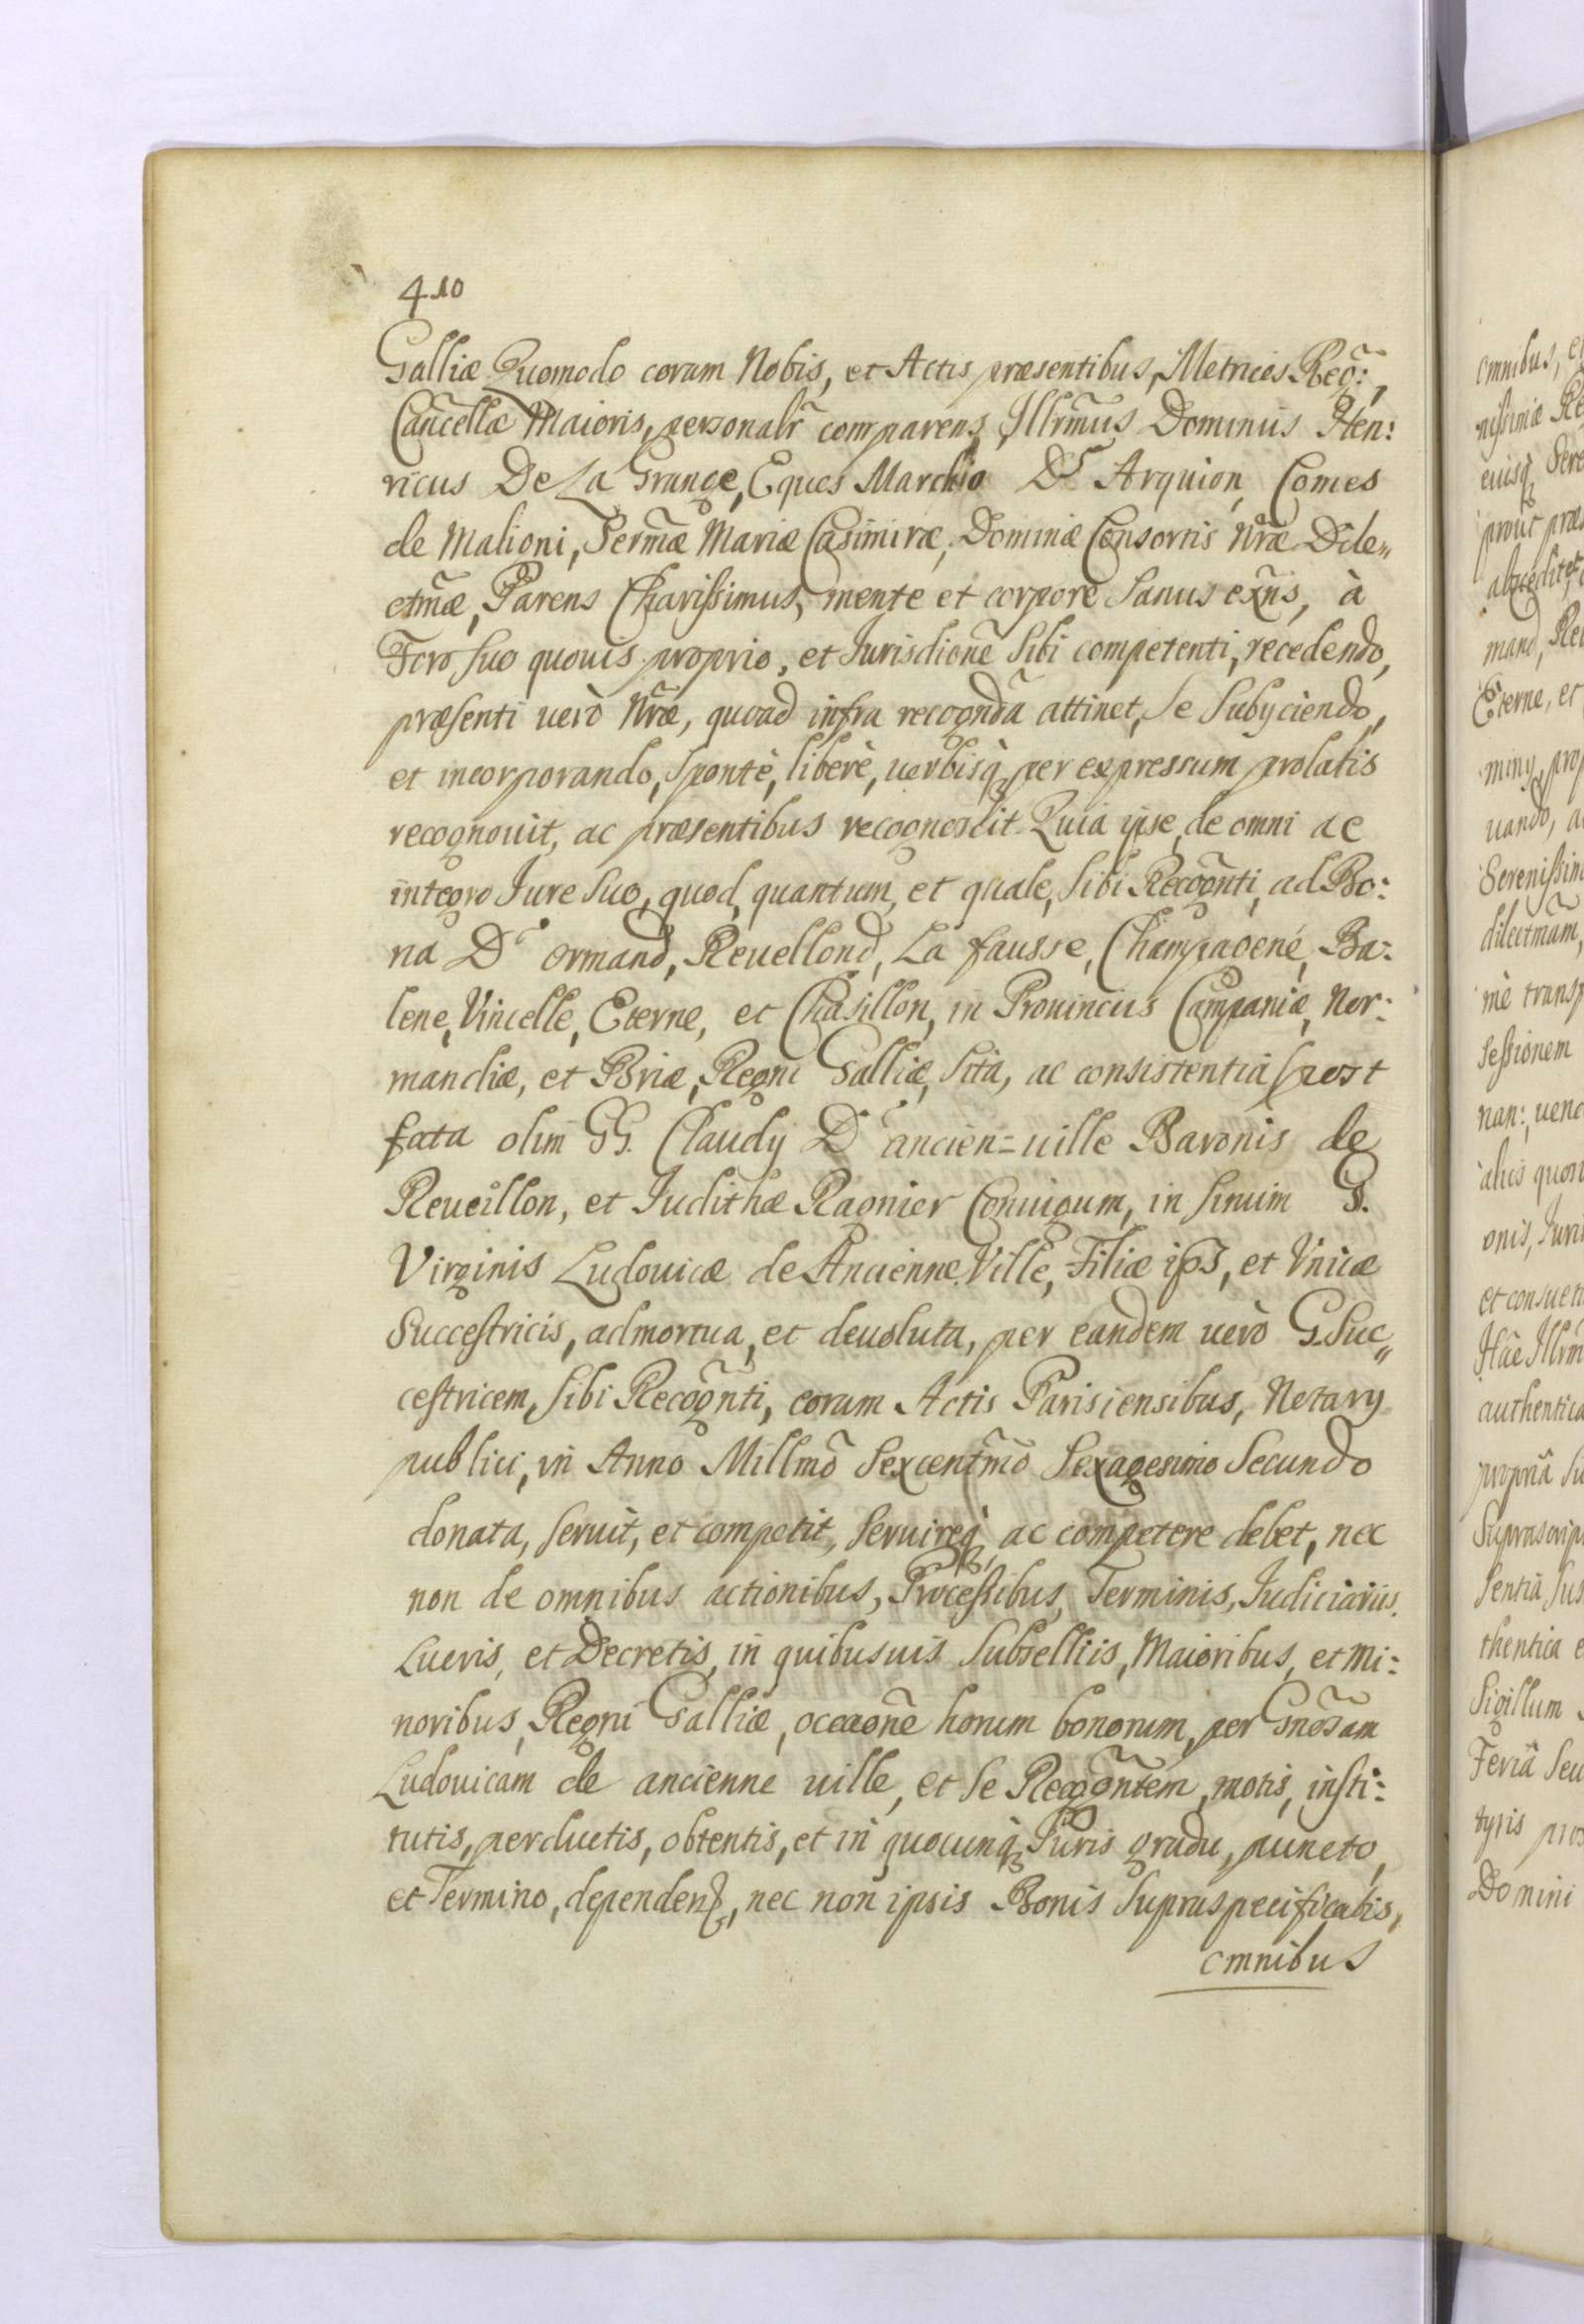 410
Galliæ Quomodo coram Nobis, et Actis præsentibus, Metrices Reg̃:,
Cañcellæ Maioris, personalr̃ comparens, Illrm̃us Dominus Hen:
ricus De La Grange, Eques Marchio De Arquion, Comes
de Malioni, Serm̃æ Mariæ Casimiræ, Dominæ Consortis Nr̃æ Dile„
ctm̃æ, Parens Charissimus, mente et corpore Sanus exñs, à
Foro Suo quouis proprio, et Jurisdioñe Sibi competenti, recedendo,
præsenti uerò Nr̃æ, quoad infra recognd̃a attinet, Se Subyciendo,
et incorporando, Spontè, liberè, uerbisq̀ per expressum prolatis
recognouit, ac præsentibus recognoscit Quia ipse, de omni ac
integro Jure Suo, quod, quantum, et quale, Sibi Recog̃nti, ad Bo:
na De ormand, Reuellond, La fausse, Champagené, Ba:
lene, Vincelle, Eterne, et Chasillon, in Prouinciis Campaniæ, Nor:
mandiæ, et Briæ, Regni Galliæ, Sita, ac consistentia post
fata olim GG. Claudy De ancien=uille Baronis de
Reueillon, et Judithæ Ragnier Coniugum, in Sinum G.
Virginis Ludouicæ de Ancienne Ville, Filiæ ips, et Vnicæ
Successtricis, admortua, et deuoluta, per eandem uerò G. Suc„
cestricem, Sibi Recog̃nti, coram Actis Parisiensibus, Notary
publici, in Anno Millm̃o Sexcentm̃o Sexagesimo Secundo
donata, Seruit, et competit, Seruireq̀, ac competere debet, nec
non de omnibus actionibus, Processibus, Terminis, Judiciariis
Lucris, et Decretis, in quibusuis Subselliis, Maioribus, et Mi:
noribus, Regni Galliæ, occaoñe horum bonorum, per Gnõsam
Ludouicam de ancienne uille, et Se Recogñtem, motis, insti:
tutis, perductis, obtentis, et in quocunq̀ Juris gradu, puncto,
et Termino, dependen, nec non ipsis Bonis Supraspecificatis,
omnibus
omnibus,
euisq
mand,
Eterne, et
Sessionem
authentica
Sigillum
Domini